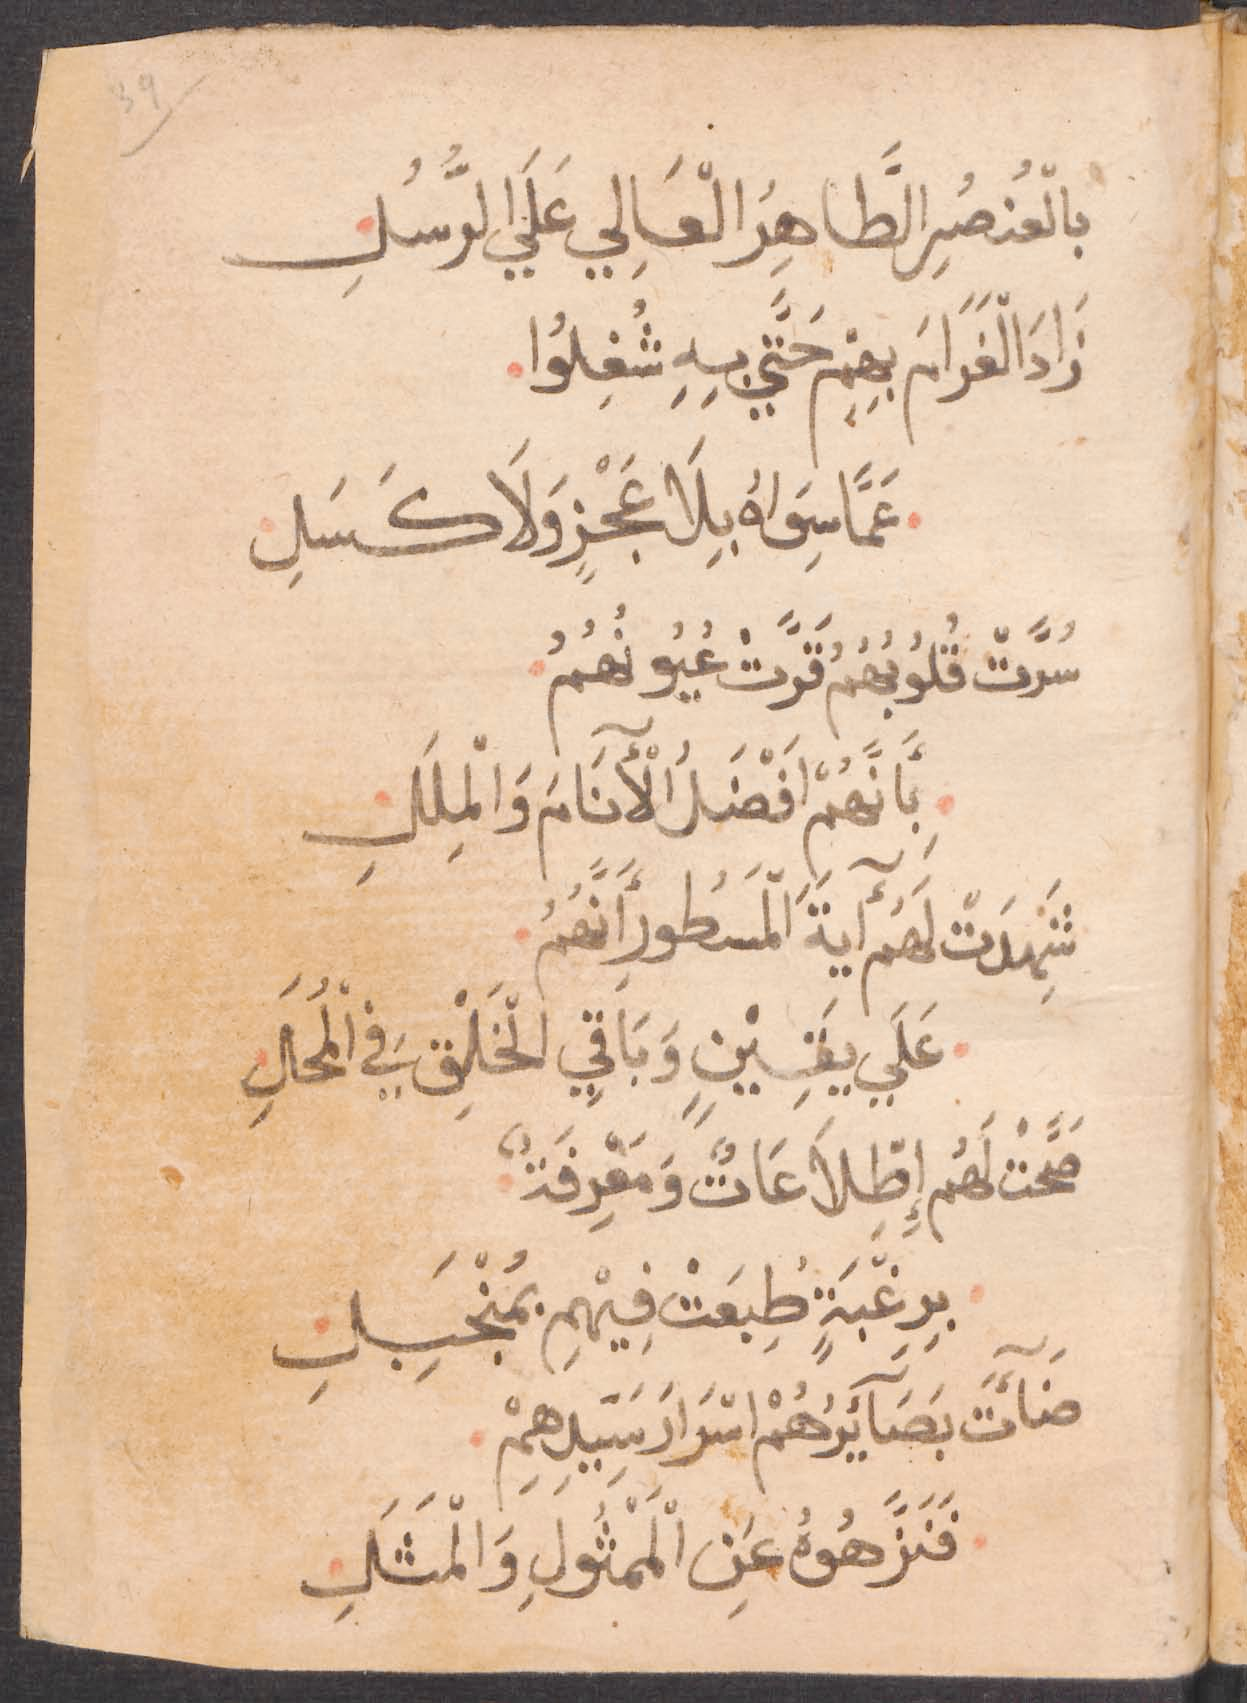 39
بالْعُنصُرِ الطَّاهِرُ الْعَالِي عَلَي الرُّسُلِ
زَادَ الْغَرَامَ بِهِمْ حَتَّي بِهِ شُغِلُوا
عَمَّا سِوَاهُ بِلَا عَجْزٍ وَلَا كَسَلِ
سُرَّتْ قُلُوبُهُمُ قَرَّتْ عُيُونُهُمُ
بِأَنَّهُمْ اَفْضَلُ الْأَنَامَ وَالْمِلَلِ
شَهِدَتْ لَهُم آيَةَ الْمَسْطُورِ أَنَّهُمُ
عَلَي يَقِيْنٍ وَبَاقِي الْخَلْقِ فِي الْمُحَلِ
صَحَّتْ لَهُم إِطِّلَاعَاتٌ وَمَعْرِفَةٌ
بِرِغْبَةٍ طُبِعَتْ فِيْهِمِ بِمُنْجَبِلِ
ضَآءَتْ بَصَآئِرُهُمْ اسْرَارَ سَيِّدِهِمْ
فَنَزَّهُوهُ عَنِ الْمَمْثُولِ وَالْمَثَلِ